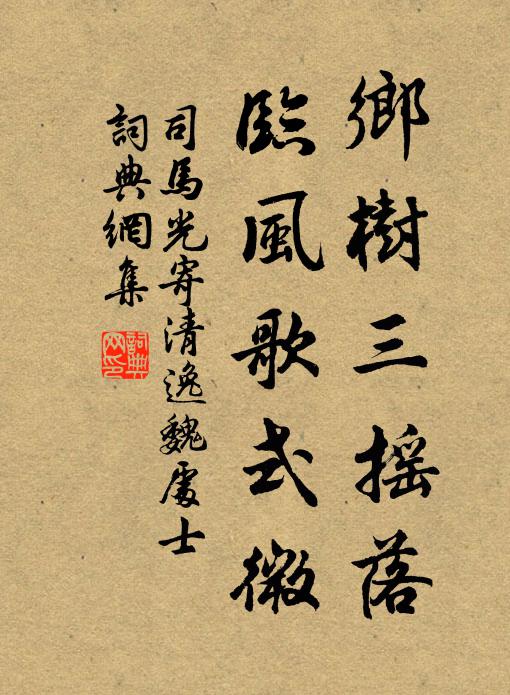 鄉樹三摇落
臨風歌式微
司馬光寄清逸魏處士
詞典網集
詞典网印